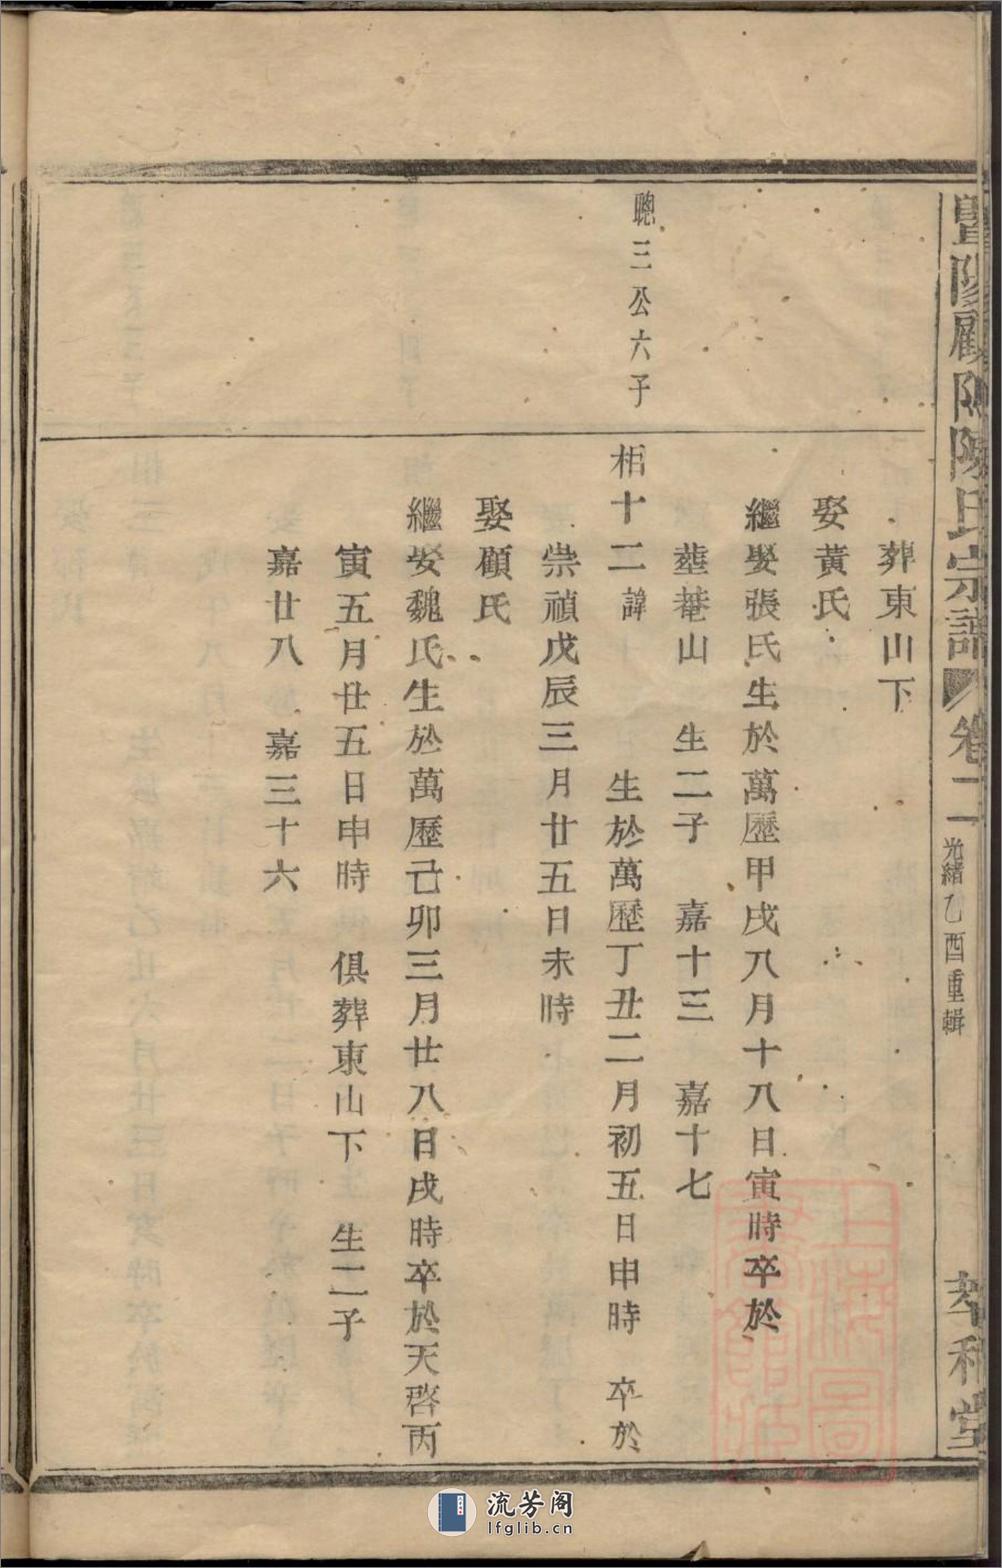 暨陽顧陳陳氏宗譜 卷二 光緒乙酉重輯
葬東山下
娶黃氏
繼娶張氏生於萬歷甲戌八月十八日寅時卒於
葬菴山 生二子 嘉十三 嘉十七
聰三公六子
相十二諱 生於萬歷丁丑二月初五日申時 卒於
崇禎戊辰三月廿五日未時
娶顧氏
繼娶魏氏生於萬歷己卯三月廿八日戌時卒於天啓丙
寅五月廿五日申時 俱葬東山下 生二子
嘉廿八 嘉三十六
流芳阁
lfglib.cn